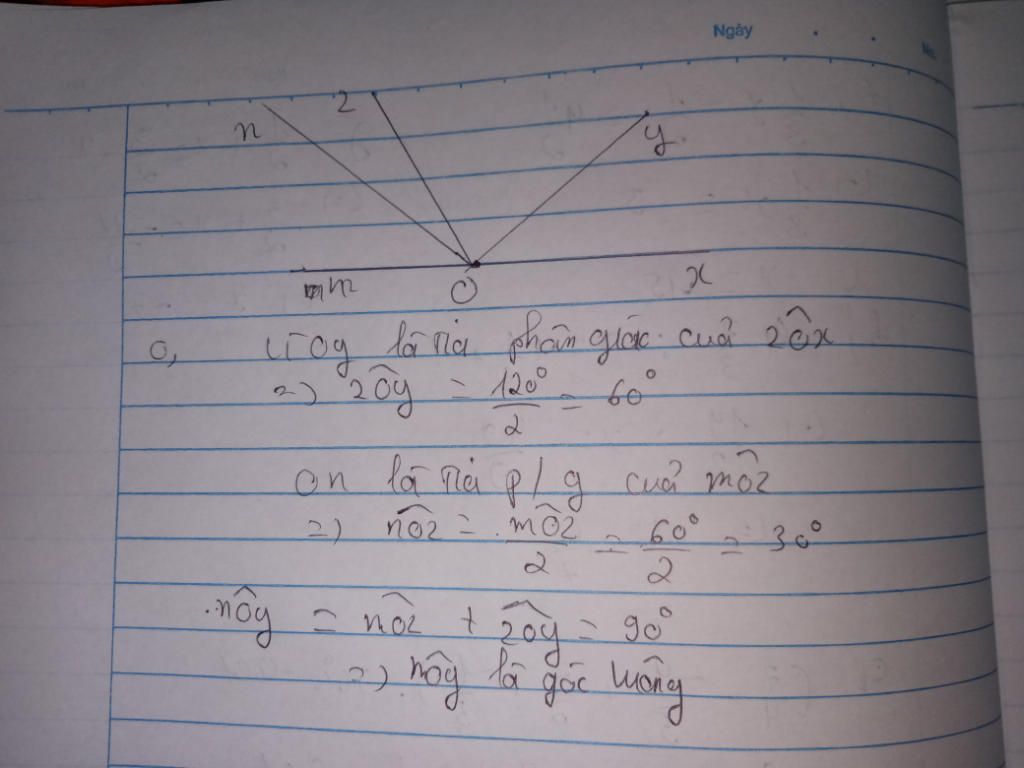 Ngày
No.
n z y
m m O x
c, Vì Oy là tia phân giác của zÔx
=) zÔy = 120°/2 = 60°
On là tia p/g của mÔz
=) nÔz = mÔz/2 = 60°/2 = 30°
nÔy = nÔz + zÔy = 90°
=) nôy là góc vuông